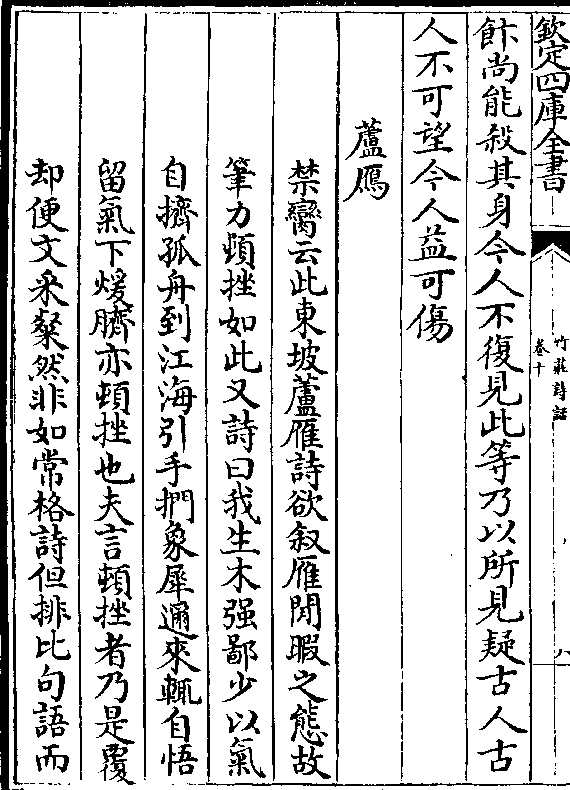 欽定四庫全書
竹莊詩話
卷十
八
飦尚能殺其身今人不復見此等乃以所見疑古人古
人不可望今人益可傷
蘆鴈
禁臠云此東坡蘆雁詩欲叙雁閒暇之態故
筆力頓挫如此又詩曰我生木强鄙少以氣
自擠孤舟到江海引手捫象犀邇來輒自悟
留氣下煖臍亦頓挫也夫言頓挫者乃是覆
却便文采粲然非如常格詩但排比句語而